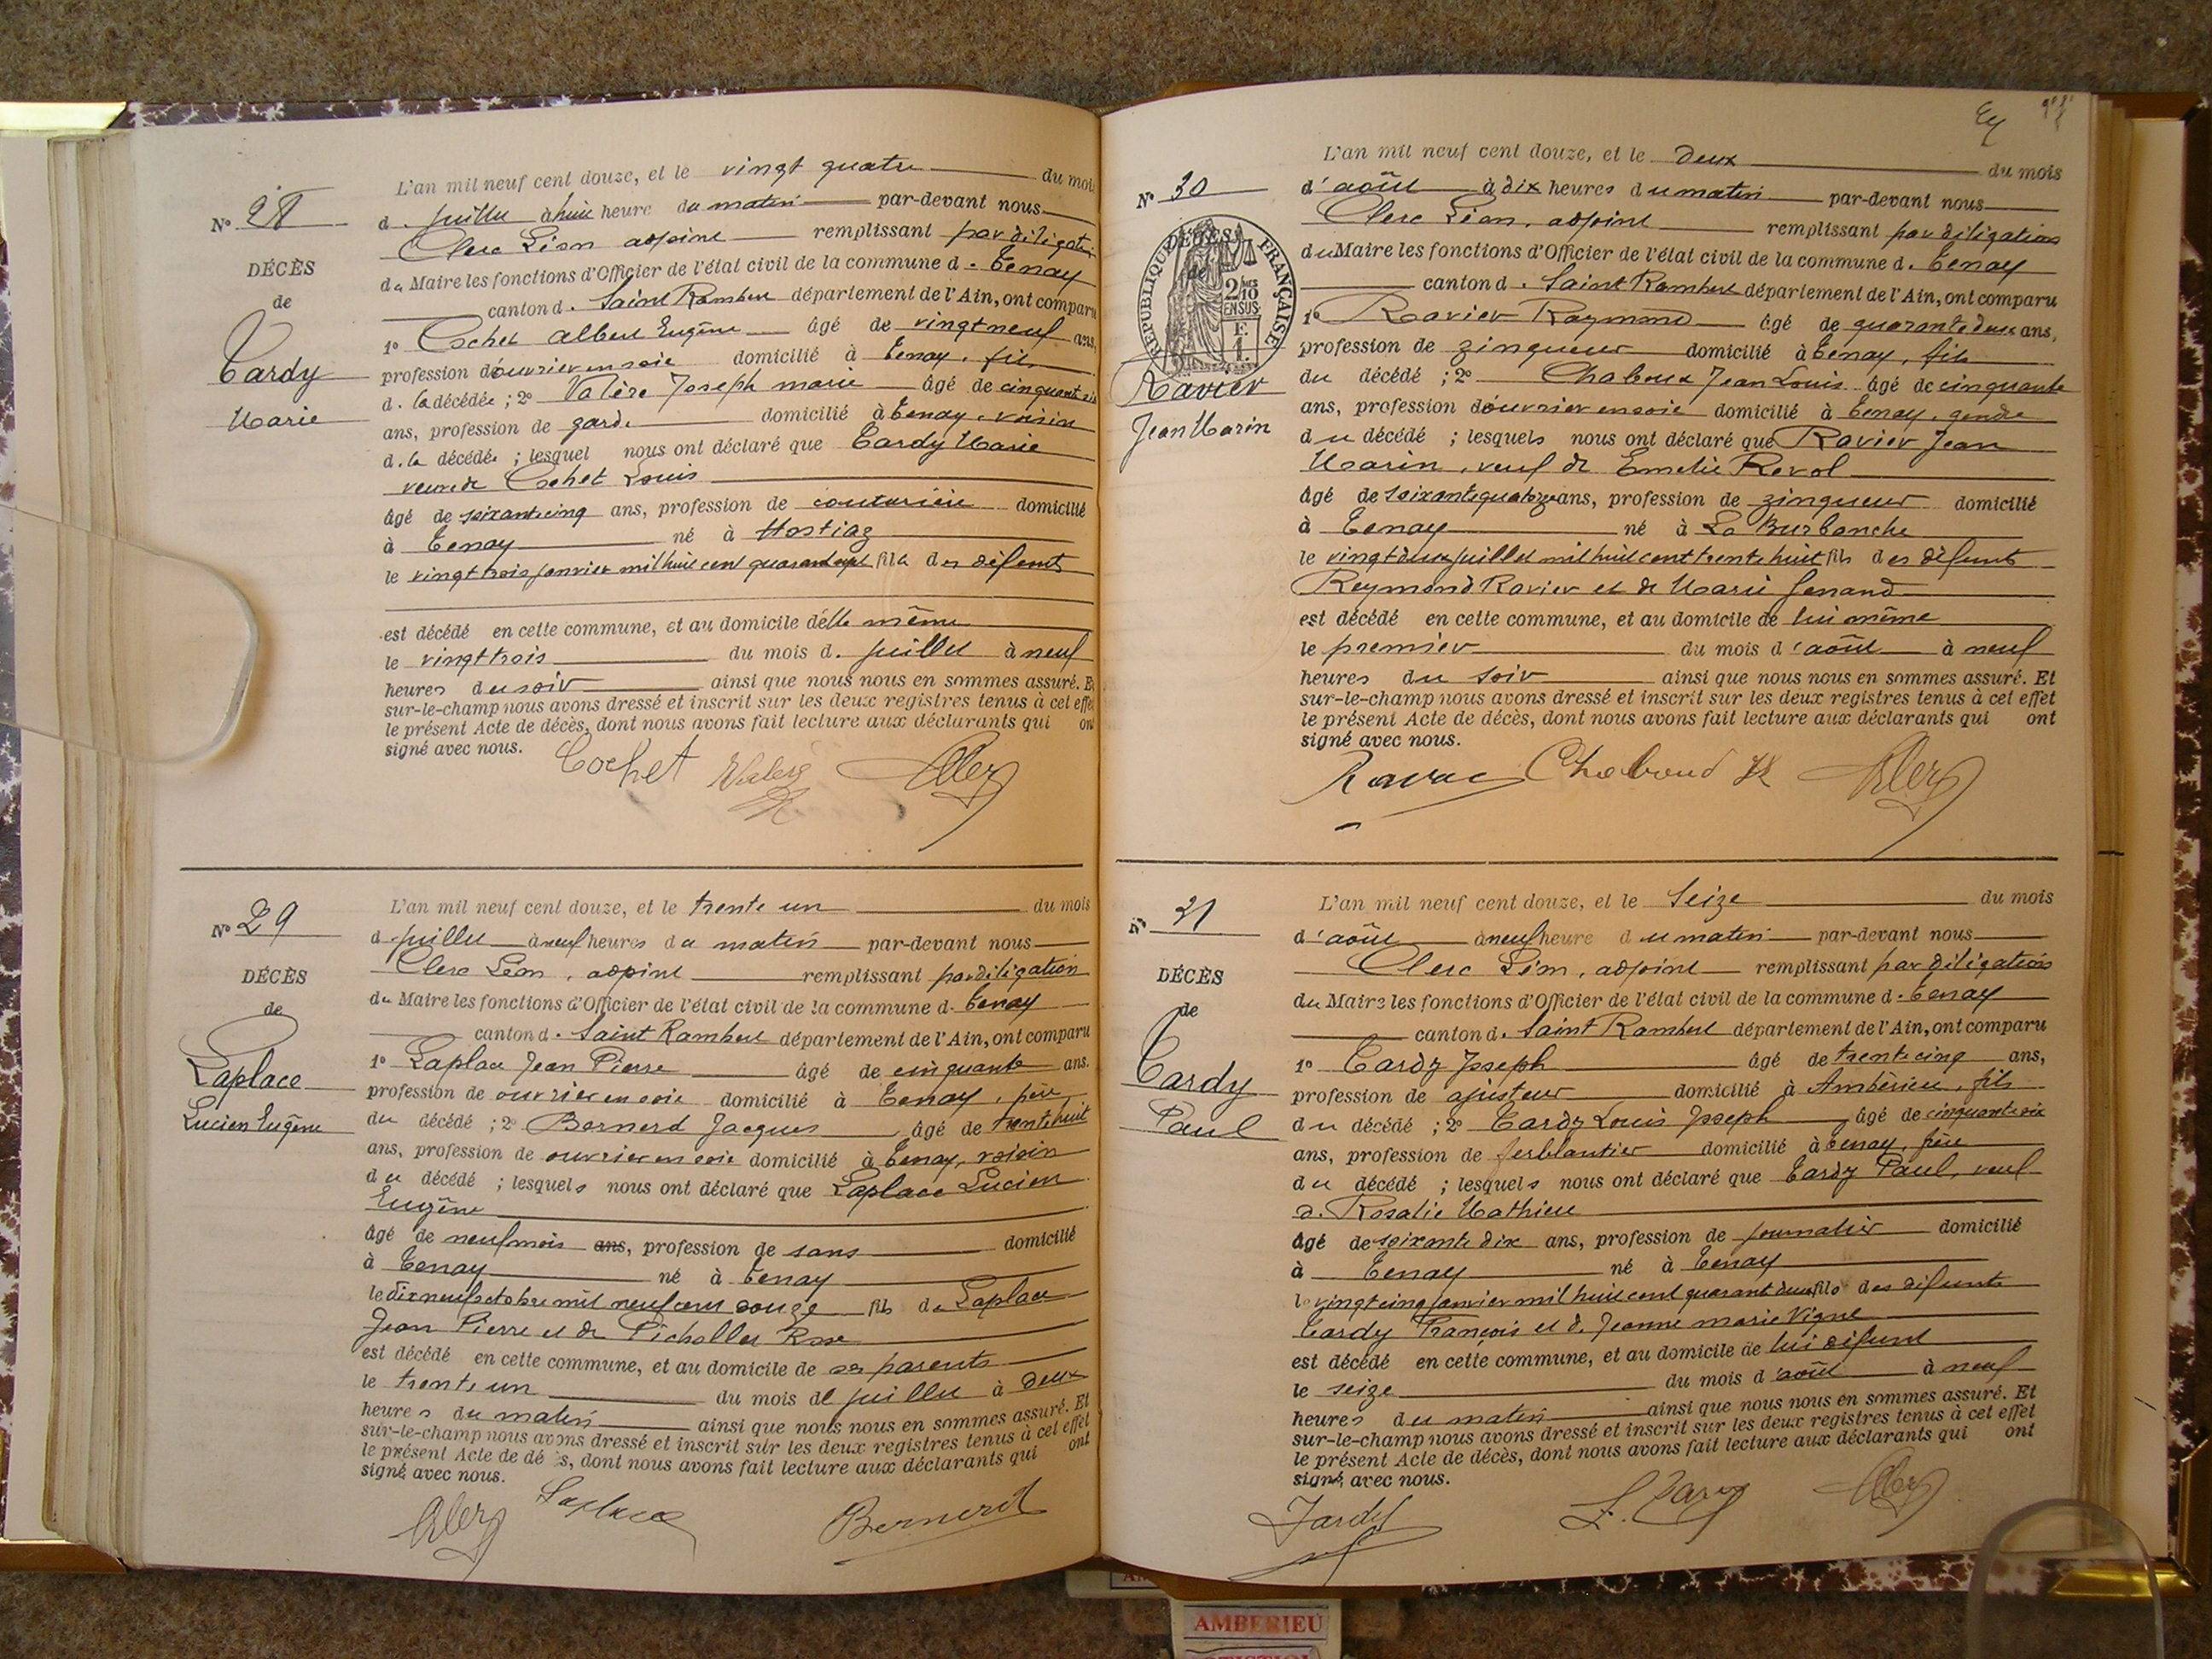 L'an mil neuf cent douze, et le vingt quatre du mois
N° 28
d. juillet à huit heure du matin par-devant nous
Clerc Léon adjoint remplissant par délégation
DÉCÈS
du Maire les fonctions d'Officier de l'état civil de la commune d. Tenay
de
canton d. Saint Rambert département de l'Ain, ont comparu
1° Cochet Albert Eugène âgé de vingt neuf ans,
Tardy
profession d'ouvrier en soie domicilié à Tenay, fils
Marie
d. la décédée ; 2° Valère Joseph marie âgé de cinquante six
ans, profession de garde domicilié à Tenay, voisin
d. la décédée ; lesquel nous ont déclaré que Tardy Marie
veuve de Cochet Louis
âgé de soixante cinq ans, profession de couturière domicilié
à Tenay né à Hostiaz
le vingt trois janvier mil huit cent quarante sept fille des défunts
est décédé en cette commune, et au domicile d'elle même
le vingt trois du mois d. juillet à neuf
heures du soir ainsi que nous nous en sommes assuré. Et
sur-le-champ nous avons dressé et inscrit sur les deux registres tenus à cet effet
le présent Acte de décès, dont nous avons fait lecture aux déclarants qui ont
signé avec nous.
Cochet Valère Clerc
L'an mil neuf cent douze, et le trente un du mois
N° 29
d. juillet à neuf heures du matin par-devant nous
Clerc Léon, adjoint remplissant par délégation
DÉCÈS
du Maire les fonctions d'Officier de l'état civil de la commune d. Tenay
de
canton d. Saint Rambert département de l'Ain, ont comparu
Laplace
1° Laplace Jean Pierre âgé de cinquante ans.
Lucien Eugène
profession de ouvrier en soie domicilié à Tenay, père
du décédé ; 2° Bernerd Jacques âgé de trente huit
ans, profession de ouvrier en soie domicilié à Tenay, voisin
du décédé ; lesquels nous ont déclaré que Laplace Lucien
Eugène
âgé de neuf mois ans, profession de sans domicilié
à Tenay né à Tenay
le dix neuf octobre mil neuf cent onze fils de Laplace
Jean Pierre et de Rose
est décédé en cette commune, et au domicile de ses parents
le trente un du mois de juillet à deux
heures du matin ainsi que nous nous en sommes assuré. Et
sur-le-champ nous avons dressé et inscrit sur les deux registres tenus à cet effet
le présent Acte de décès, dont nous avons fait lecture aux déclarants qui ont
signé avec nous.
Clerc Laplace Bernerd
L'an mil neuf cent douze, et le deux du mois
N° 30
d'août à dix heures du matin par-devant nous
Clerc Léon, adjoint remplissant par délégation
DÉCÈS
de
RÉPUBLIQUE FRANÇAISE
2/10 EN SUS
F. 1.
du Maire les fonctions d'Officier de l'état civil de la commune d. Tenay
canton d. Saint Rambert département de l'Ain, ont comparu
1° Ravier Raymond âgé de quarante deux ans,
profession de zingueur domicilié à Tenay, fils
Ravier
du décédé ; 2° Chaboux Jean Louis âgé de cinquante
Jean Marin
ans, profession d'ouvrier en soie domicilié à Tenay, gendre
du décédé ; lesquels nous ont déclaré que Ravier Jean
Marin, veuf de Emelie Revol
âgé de soixante quatorze ans, profession de zingueur domicilié
à Tenay né à La Burbanche
le vingt deux juillet mil huit cent trente huit fils des défunts
Reymond Ravier et de Marie Genand
est décédé en cette commune, et au domicile de lui même
le premier du mois d'août à neuf
heures du soir ainsi que nous nous en sommes assuré. Et
sur-le-champ nous avons dressé et inscrit sur les deux registres tenus à cet effet
le présent Acte de décès, dont nous avons fait lecture aux déclarants qui ont
signé avec nous.
Chaboud Clerc
L'an mil neuf cent douze, et le seize du mois
N° 31
d'août à neuf heure du matin par-devant nous
Clerc Léon, adjoint remplissant par délégation
DÉCÈS
du Maire les fonctions d'Officier de l'état civil de la commune d. Tenay
de
canton d. Saint Rambert département de l'Ain, ont comparu
1° Tardy Joseph âgé de trente cinq ans,
Tardy
profession de ajusteur domicilié à Ambérieu, fils
Paul
du décédé ; 2° Tardy Louis Joseph âgé de cinquante six
ans, profession de ferblantier domicilié à Tenay, frère
du décédé ; lesquels nous ont déclaré que Tardy Paul, veuf
d. Rosalie Mathieu
âgé de soixante dix ans, profession de journalier domicilié
à Tenay né à Tenay
le vingt cinq janvier mil huit cent quarante deux fils des défunts
Tardy François et d. Jeanne marie Vigne
est décédé en cette commune, et au domicile de lui défunt
le seize du mois d'août à neuf
heures du matin ainsi que nous nous en sommes assuré. Et
sur-le-champ nous avons dressé et inscrit sur les deux registres tenus à cet effet
le présent Acte de décès, dont nous avons fait lecture aux déclarants qui ont
signé, avec nous.
Tardy L. Tardy Clerc
AMBERIEU